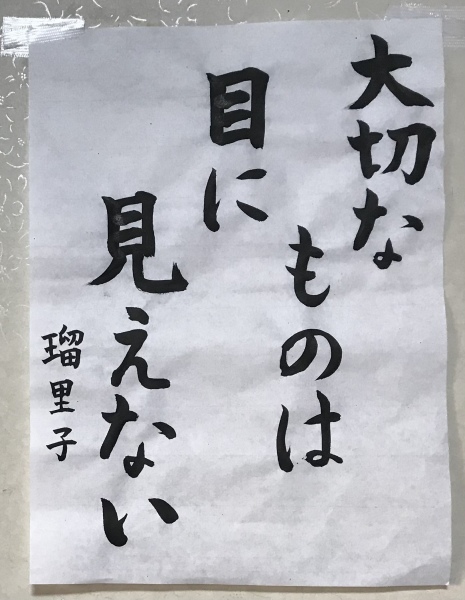 大切な
ものは
目に
見えない
瑠里子